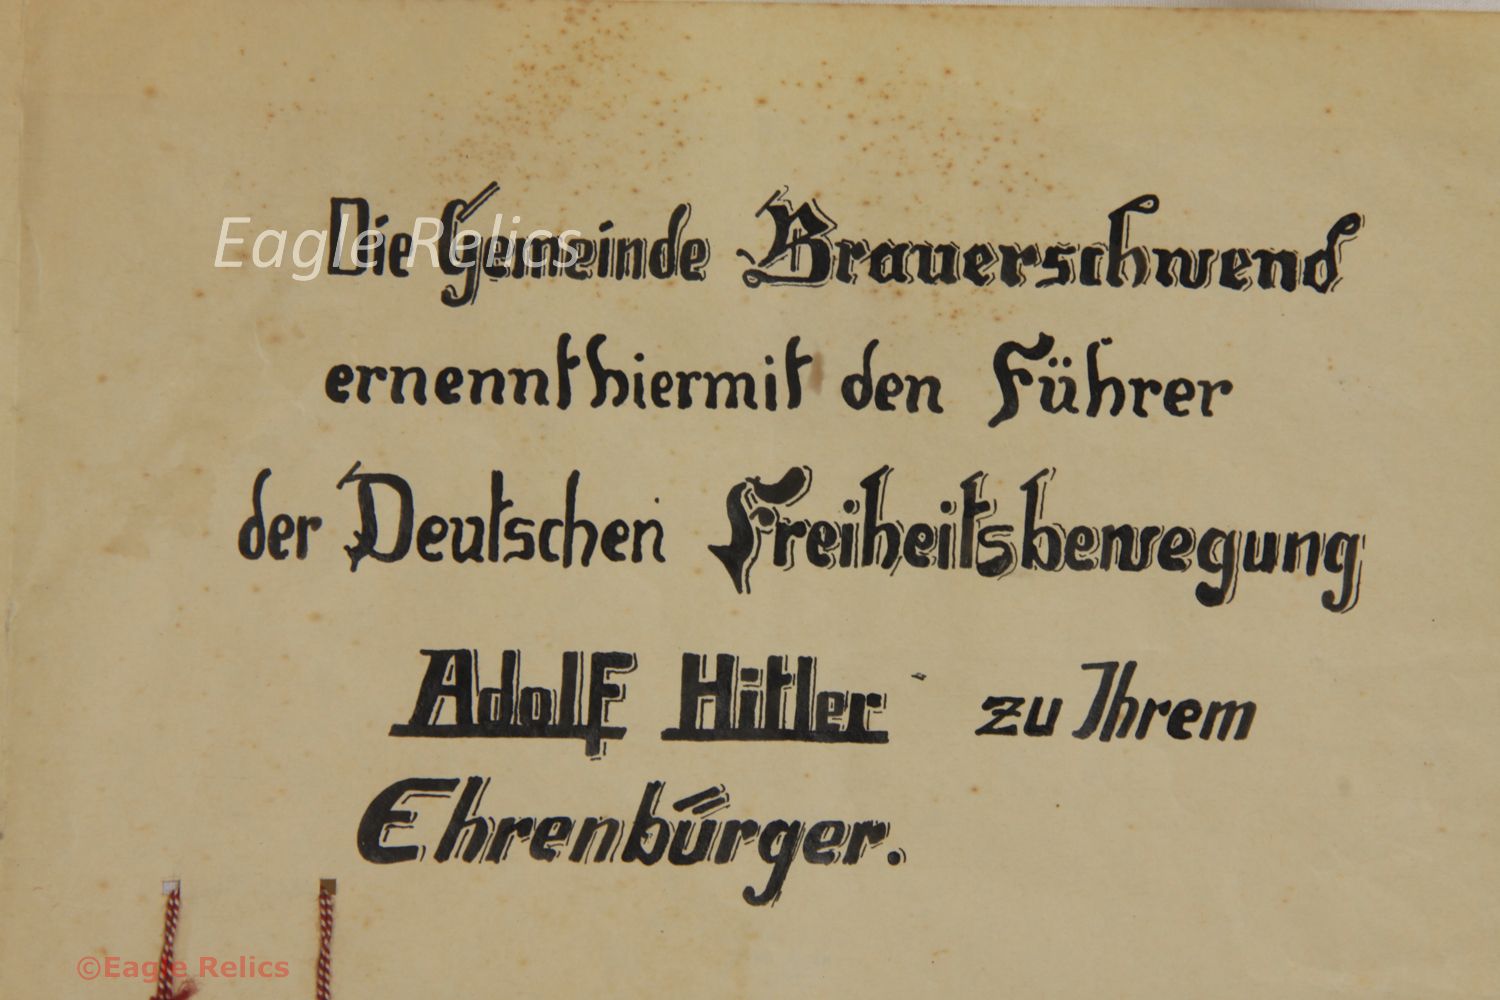 Eagle Relics
Die Gemeinde Brauerschwend
ernennt hiermit den Führer
der Deutschen Freiheitsbewegung
Adolf Hitler zu Ihrem
Ehrenbürger.
©Eagle Relics